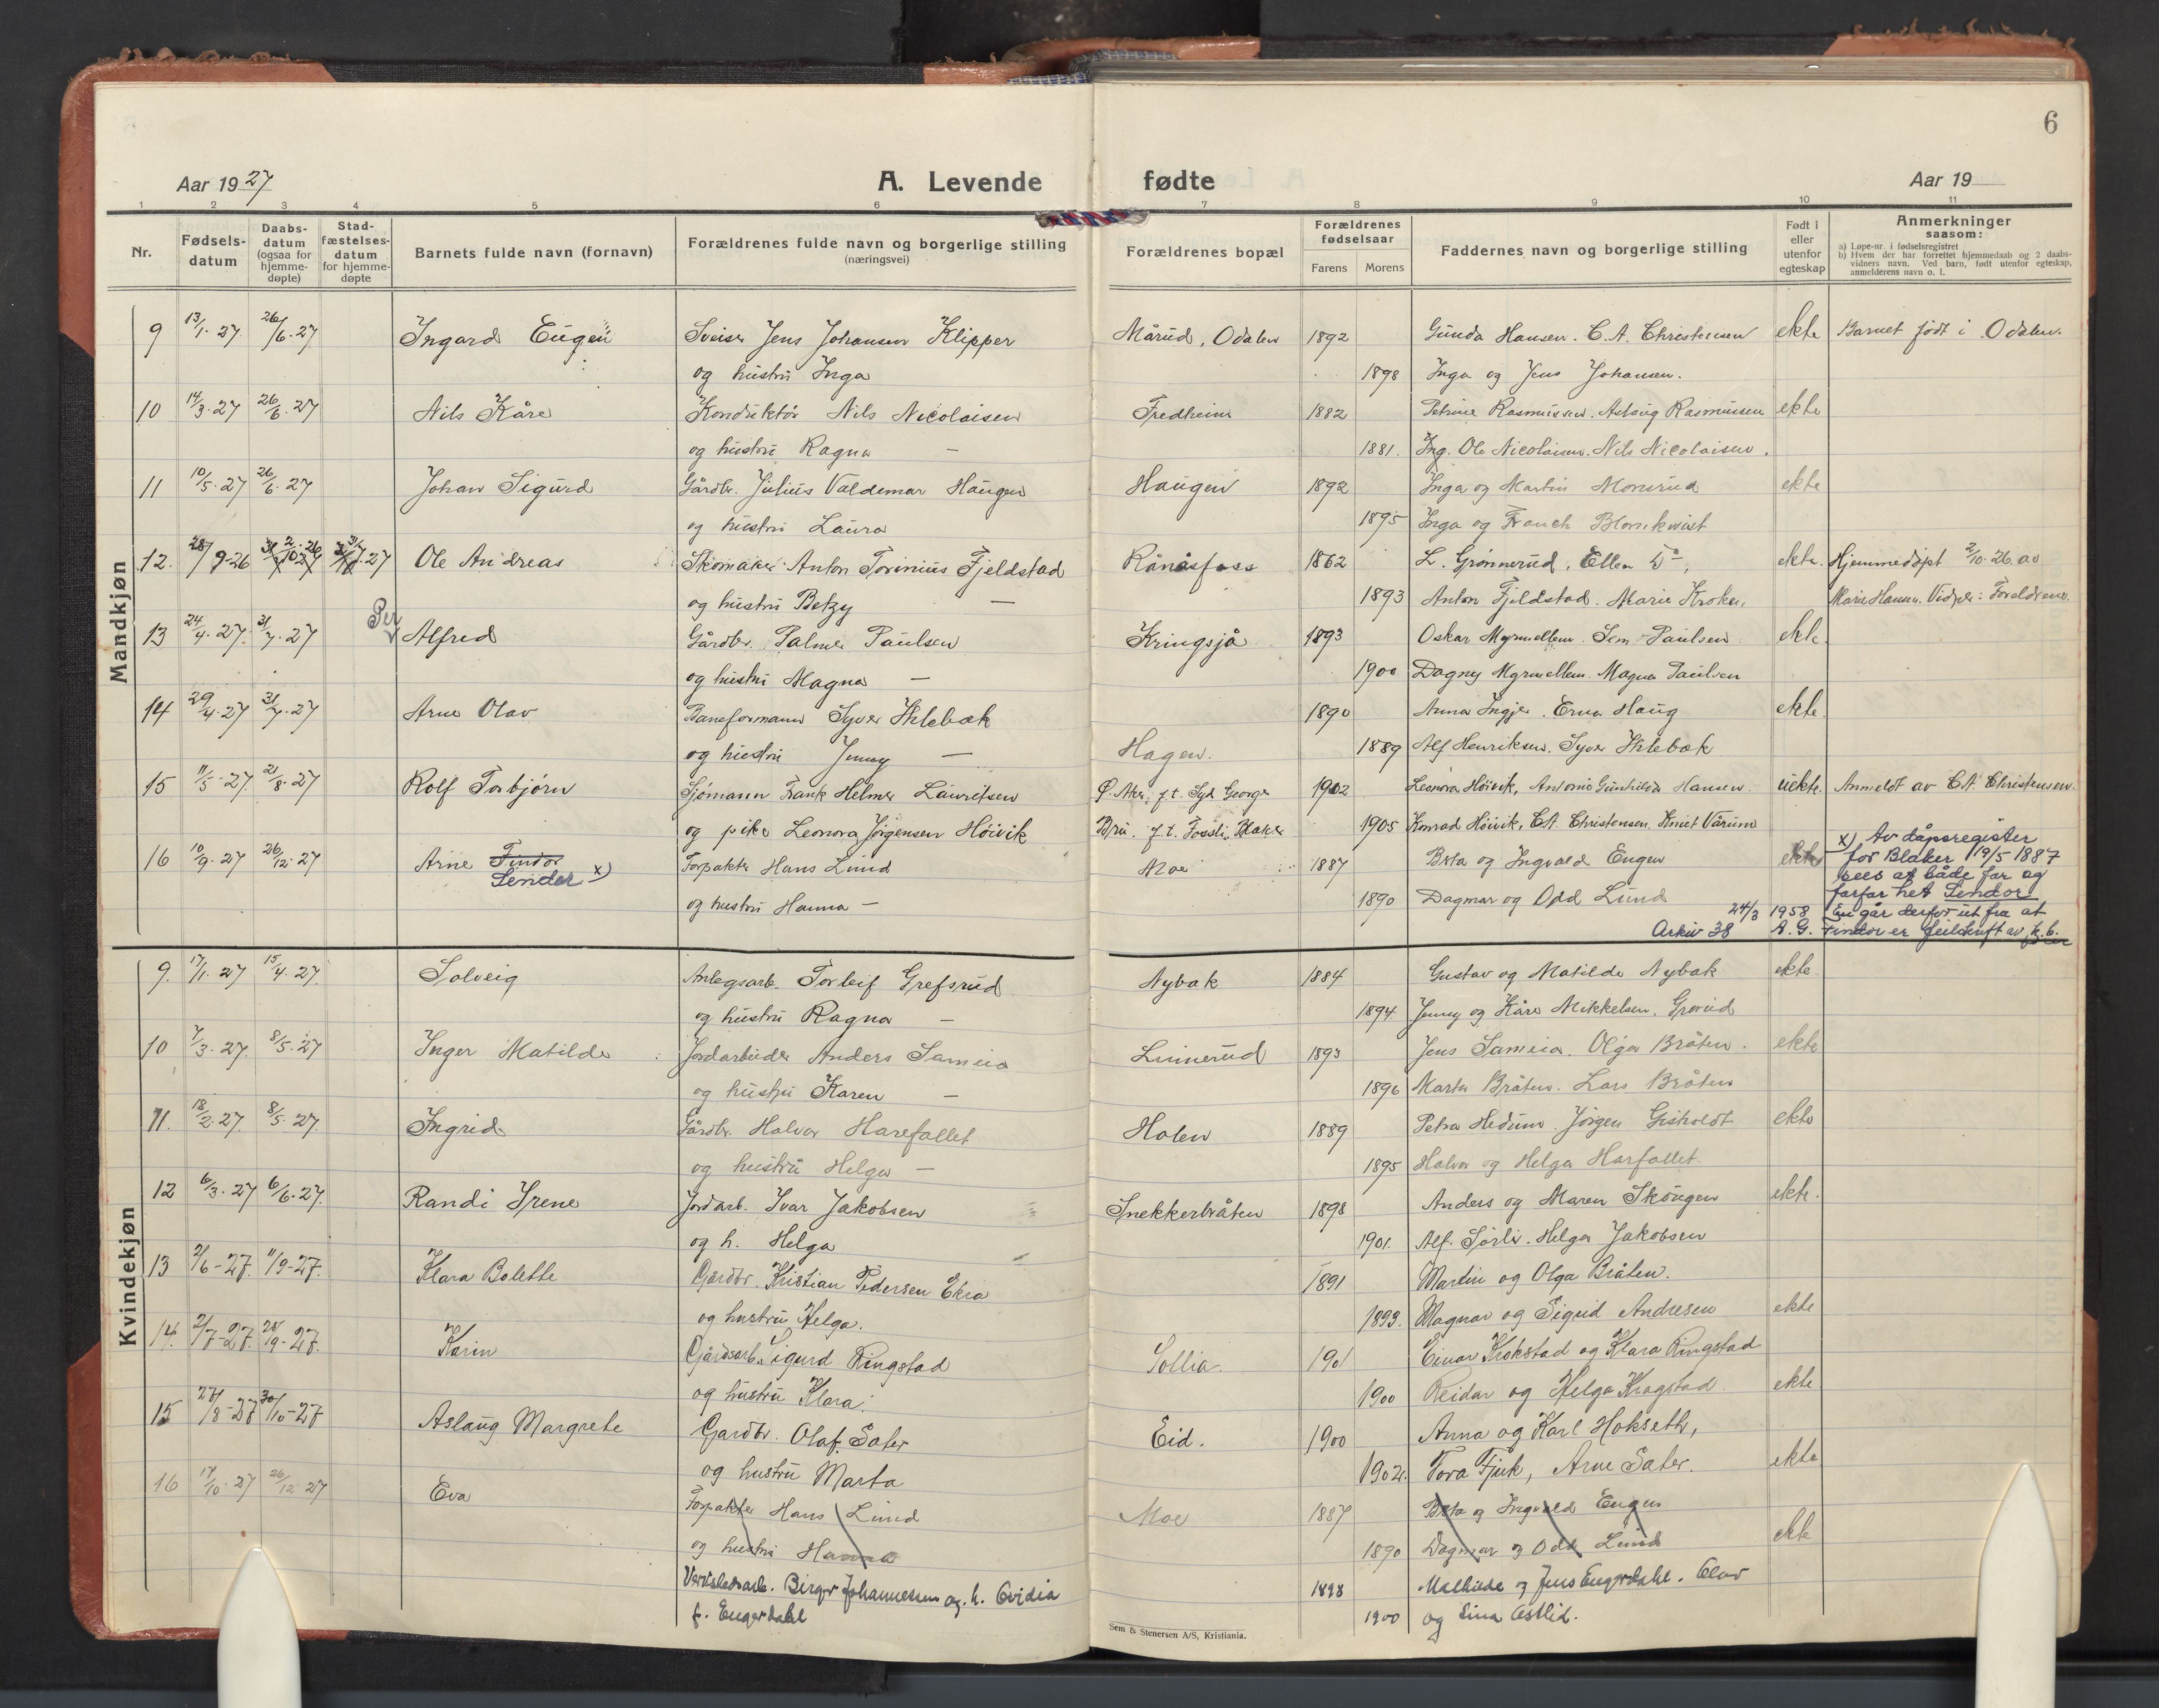 6
Aar 1927 A. Levende fødte Aar 19
1 2 3 4 5 6 7 8 9 10 11
Nr. Fødsels-datum Daabs-datum (ogsaa for hjemme-døpte) Stad-fæstelses-datum for hjemme-døpte Barnets fulde navn (fornavn) Forældrenes fulde navn og borgerlige stilling (næringsvei) Forældrenes bopæl Forældrenes fødselsaar Farens Morens Faddernes navn og borgerlige stilling Født i eller utenfor egteskap Anmerkninger saasom:
a) Løpe-nr. i fødselsregistret
b) Hvem der har forrettet hjemmedaab og 2 daabs-vidners navn. Ved barn, født utenfor egteskap, anmelderens navn o. l.
Mandkjøn
9 13/1-27 26/6-27 Ingard Eugen Sveiser Jens Johansen Klipper Mårud, Odalen 1892 Gunda Hansen. C. A. Christensen ekte Barnet født i Odalen.
og hustru Inga 1898 Inga og Jens Johansen.
10 14/3-27 26/6-27 Nils Kåre Konduktør Nils Nicolaisen Fredheim 1882 Petrine Rasmussen. Aslaug Rasmussen ekte
og hustru Ragna — 1881. Ing. Ole Nicolaisen. Nils Nicolaisen.
11 10/5-27 26/6-27 Johan Sigurd Gårdbr. Julius Valdemar Haugen Haugen 1892 Inga og Martin Monsrud ekte
og hustru Laura 1895 Inga og Franch Blomkvist
12. 28/9-26 Ole Andreas Skomaker Anton Torinius Fjeldstad Rånåsfoss 1862 L. Grønnerud, Ellen Do, ekte. Hjemmedøpt 2/10-26 av
og hustru Betzy — 1893 Anton Fjeldstad. Marie Kroken. Marie Hansen. Vidner: Foreldrene.
13 24/4-27 31/7-27 Per Alfred Gårdbr. Palmer Paulsen Kringsjå 1893 Oskar Myrmellem. Sem Paulsen ekte.
og hustru Magna — 1900 Dagny Myrmellem. Magna Paulsen
14 29/4-27 31/7-27 Arne Olav Baneformann Syver Khlebæk 1890 Anna Ingjer. Erna Haug ekte.
og hustru Jenny — Hagen. 1889 Alf Henriksen. Syver Khlebæk
15 11/5-27 21/8-27 Rolf Torbjørn Sjømann Frank Helmer Lauritsen Ø. Aker, f. t. Syd Georgia 1902 Leonora Høivik, Antonie Gunhilda Hansen. uekte. Anmeldt av C.A. Christensen.
og pike Leonora Jørgensen Høivik Bru. f. t. Fossli, Blaker 1905 Konrad Høivik, C.A. Christensen. Knut Vårum
16 10/9-27 26/12-27 Arne Findor Sendor x) Forpakter Hans Lund Moe 1887 Berta og Ingvald Engen ekte x) Av dåpsregister
for Blaker 19/5 1887
sees at både far og
farfar het Sendor
og hustru Hanna — 1890 Dagmar og Odd Lund
24/3 1958 En går derfor ut fra at
Arkiv 38 A. G. Findor er feilskrift av k.b.
fører
Kvindekjøn
9. 17/1-27 15/4-27. Solveig Anlegsarb. Torleif Grefsrud Nybak 1884 Gustav og Matilde Nybak ekte
og hustru Ragna — 1894 Jenny og Kåre Mikkelsen, Grorud
10 7/3-27. 8/5-27 Inger Matilde Jordarbeider Anders Sameia Linnerud 1893 Jens Sameia. Olga Bråten. ekte
og hustru Karen — 1896 Marta Bråten. Lars Bråten
11. 18/2-27. 8/5-27. Ingrid Gårdbr. Halvor Harefallet Holen 1889 Petra Hedum. Jørgen Gisholdt ekte
og hustru Helga — 1895 Halvor og Helga Harfallet
12 6/3-27 6/6-27. Randi Irene Jordarb. Ivar Jakobsen Snekkerbråten 1898 Anders og Maren Skougen ekte.
og h. Helga 1901. Alf. Sørli. Helga Jakobsen
13 2/6-27. 11/9-27. Klara Bolette Gårdbr. Kristian Pedersen Ekra 1891 Martin og Olga Bråten.
og hustru Helga. 1893. Magnar og Sigrid Andresen ekte
14. 2/7-27. 25/9-27. Karin Gårdsarb. Sigurd Ringstad Sollia. 1901 Einar Krokstad og Klara Ringstad
og hustru Klara. 1900 Reidar og Helga Kragstad ekte
15 27/8-27 30/10-27 Aslaug Margrete Gardbr. Olaf Sater Eid. 1900 Anna og Karl Hokseth,
og hustru Marta 1902. Tora Fjuk, Arne Sater. ekte
16 17/10-27 26/12-27 Eva Forpakter Hans Lund Moe 1887 Berta og Ingvald Engen
og hustru Hanna 1890 Dagmar og Odd Lund ekte
Verkstedsarb. Birger Johannesen og h. Ovidia 1898 Mathilde og Jens Engerdahl. Olav
f. Engerdahl 1900 og Lina Østlid.
Sem & Stenersen A/S, Kristiania.